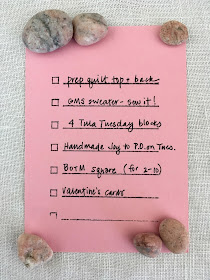 prep quilt top + back
GMS sweater - sew it!
4 Tula Tuesday blocks
Handmade Joy to P.O. on Tues.
BOTM square (for 2-10)
Valentine's cards